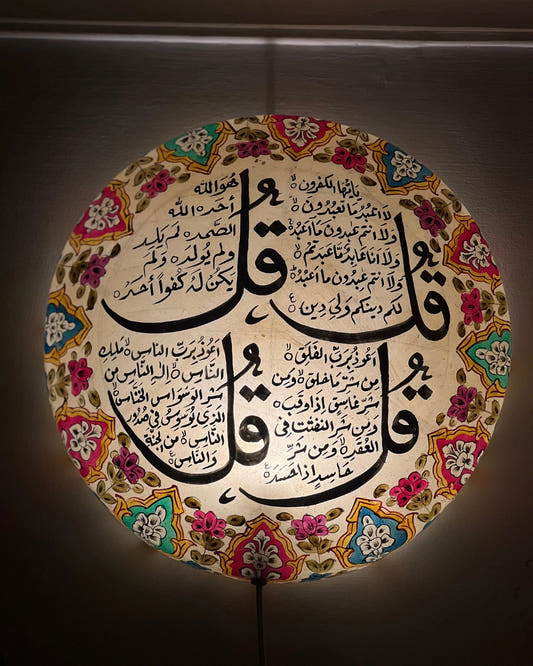 قُل
يٰٓاَيُّهَا الْكٰفِرُونَ
لَا اَعْبُدُ مَا تَعْبُدُونَ
وَلَا اَنْتُمْ عٰبِدُونَ مَا اَعْبُدُ
وَلَا اَنَا عَابِدٌ مَا عَبَدْتُمْ
وَلَا اَنْتُمْ عٰبِدُونَ مَا اَعْبُدُ
لَكُمْ دِينُكُمْ وَلِيَ دِينِ
قُل
هُوَ اللّٰهُ
أَحَدٌ اَللّٰهُ
الصَّمَدُ لَمْ يَلِدْ
وَلَمْ يُولَدْ وَلَمْ
يَكُنْ لَهُ كُفُوًا أَحَدٌ
قُل
اَعُوذُ بِرَبِّ الْفَلَقِ
مِنْ شَرِّ مَا خَلَقَ وَمِنْ
شَرِّ غَاسِقٍ اِذَا وَقَبَ
وَمِنْ شَرِّ النَّفّٰثٰتِ فِى
الْعُقَدِ وَمِنْ شَرِّ
حَاسِدٍ اِذَا حَسَدَ
قُل
اَعُوذُ بِرَبِّ النَّاسِ مَلِكِ
النَّاسِ اِلٰهِ النَّاسِ مِنْ
شَرِّ الْوَسْوَاسِ الْخَنَّاسِ
الَّذِى يُوَسْوِسُ فِى صُدُورِ
النَّاسِ مِنَ الْجِنَّةِ
وَالنَّاسِ